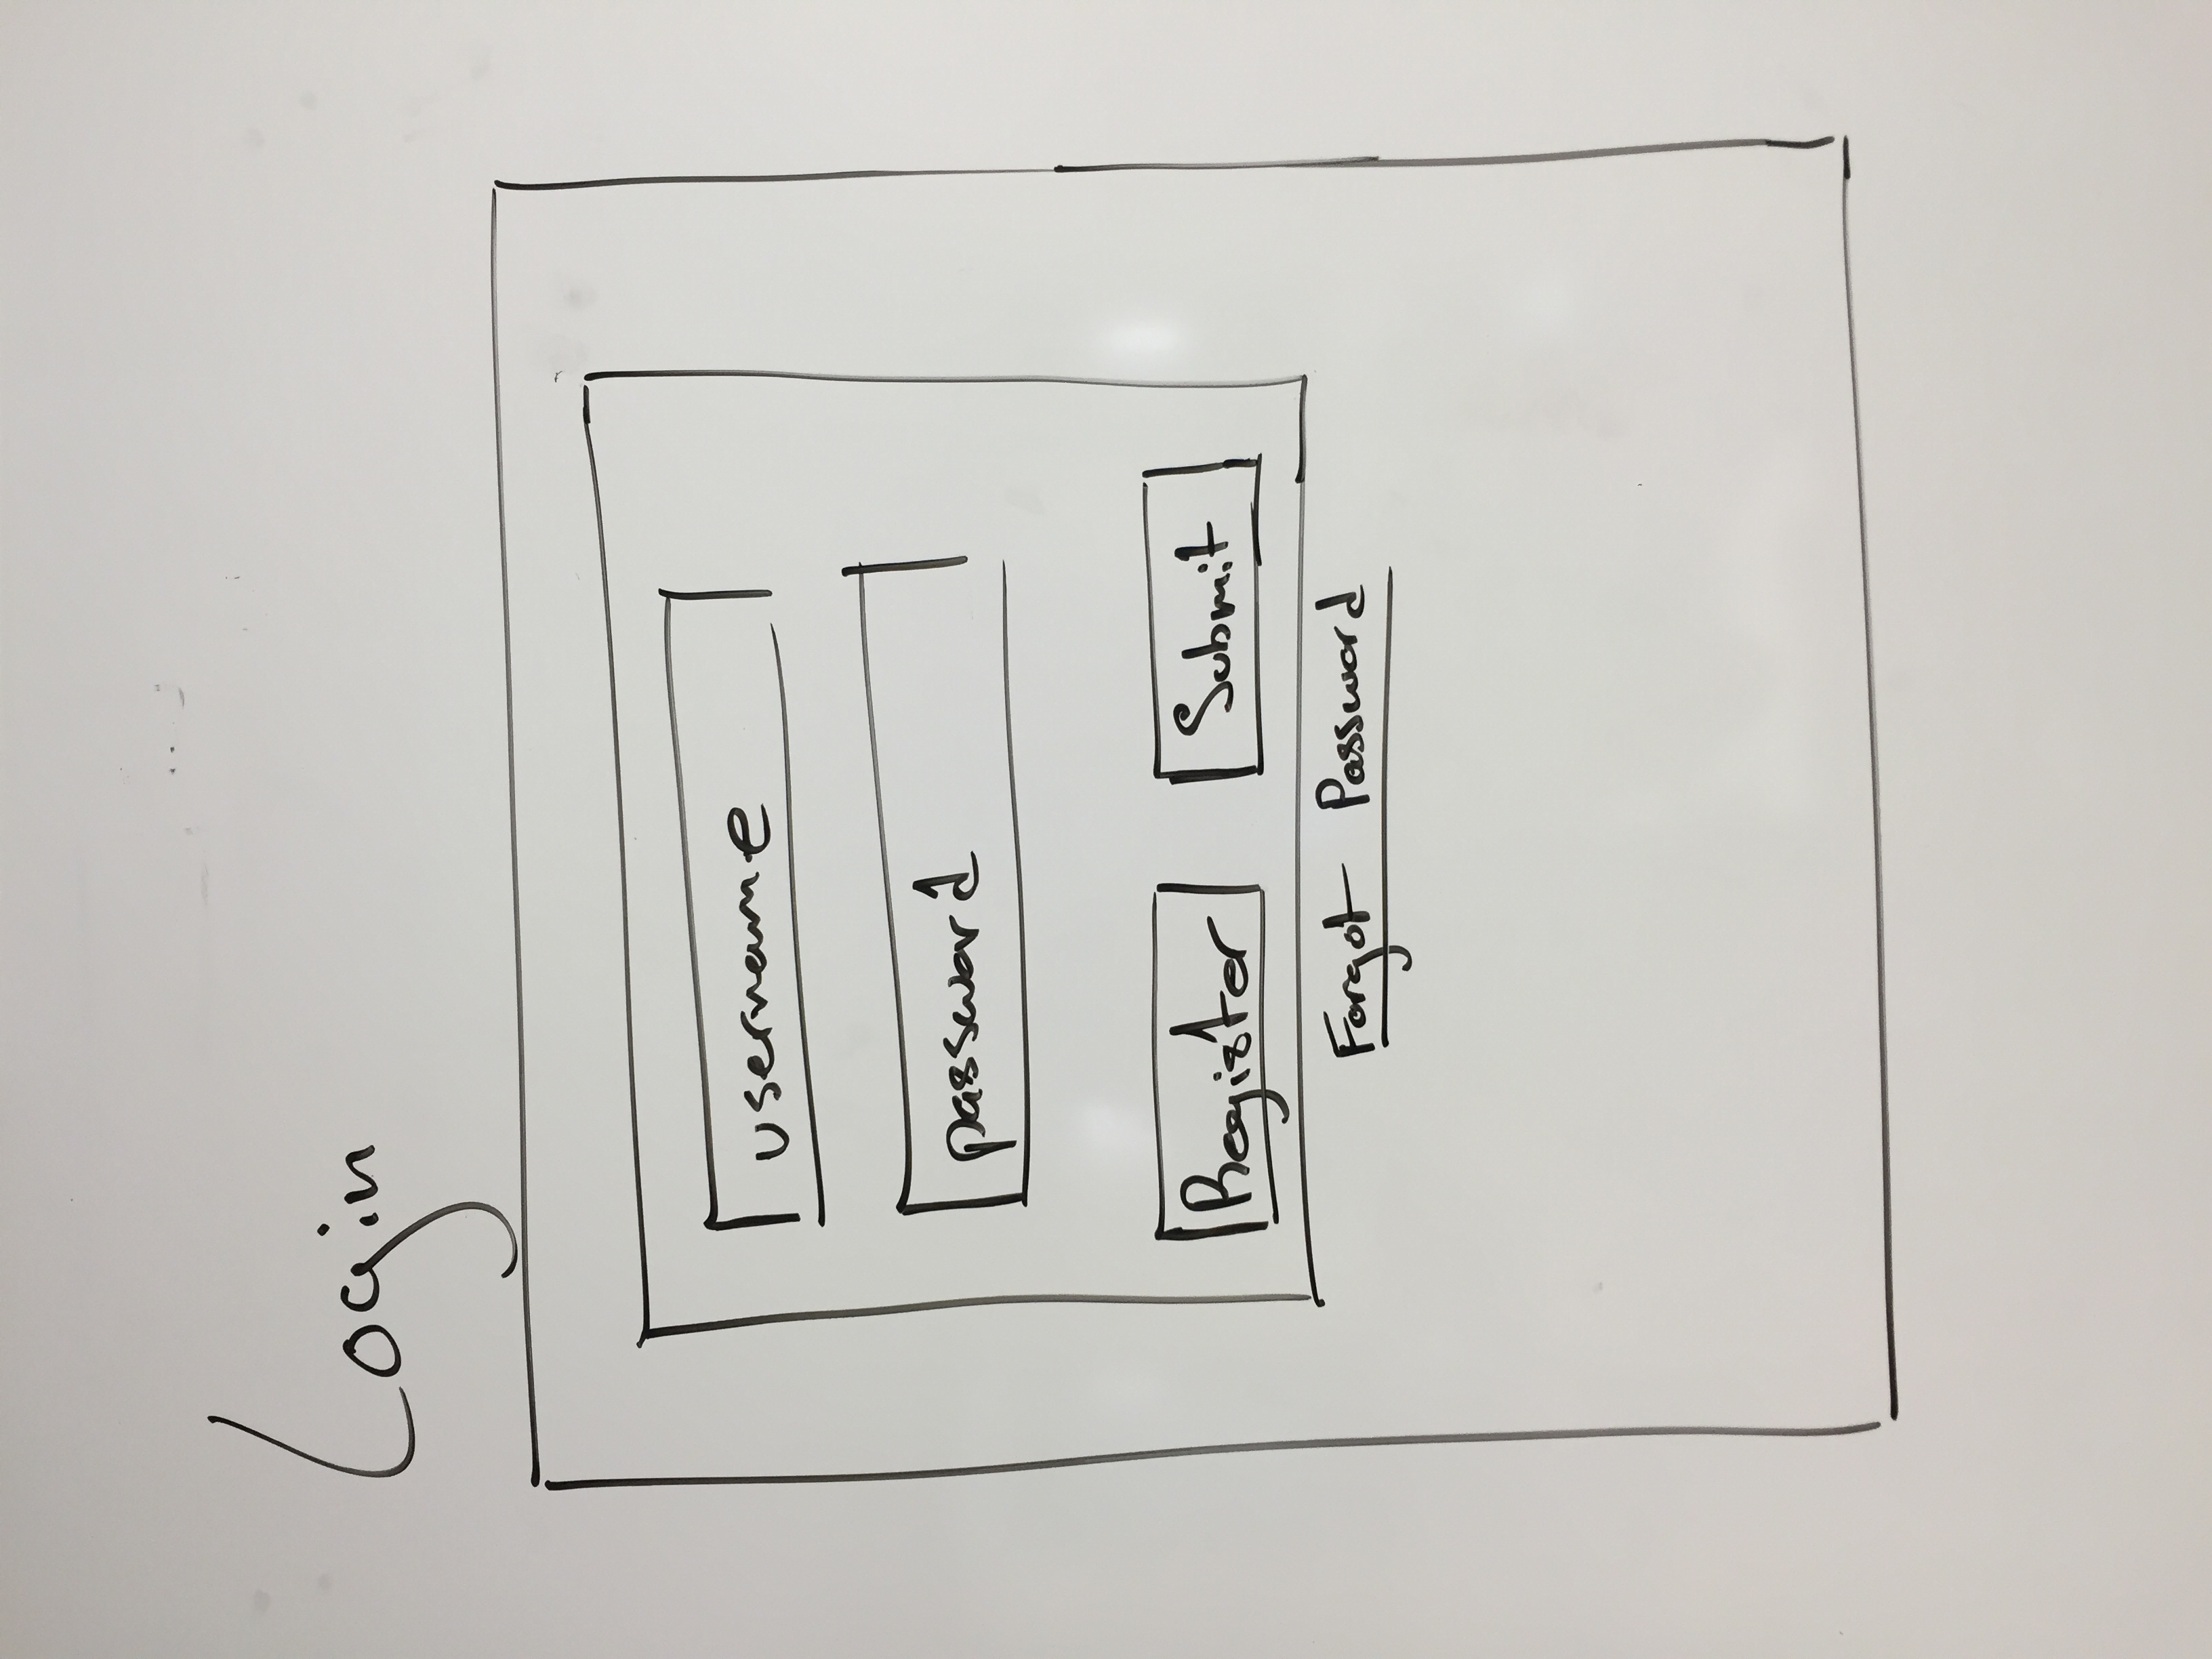 Login
username
password
Register Submit
Forgot Password